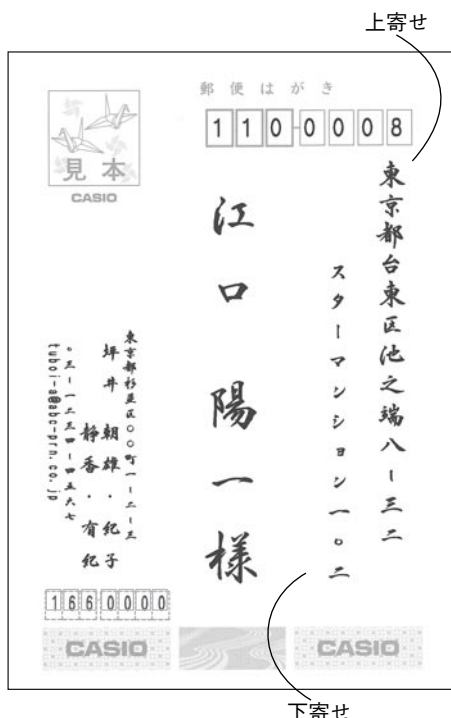 上寄せ
郵便はがき
110-0008
見本
CASIO
東京都台東区池之端八ー三二
スターマンション一〇二
江口陽一様
東京都杉並区〇〇町一ー二ー三
坪井 朝雄・紀子
静香・有紀
〇三ー一二三四ー四五六七
tuboi-a@abc-prn.co.jp
1660000
CASIO
CASIO
下寄せ